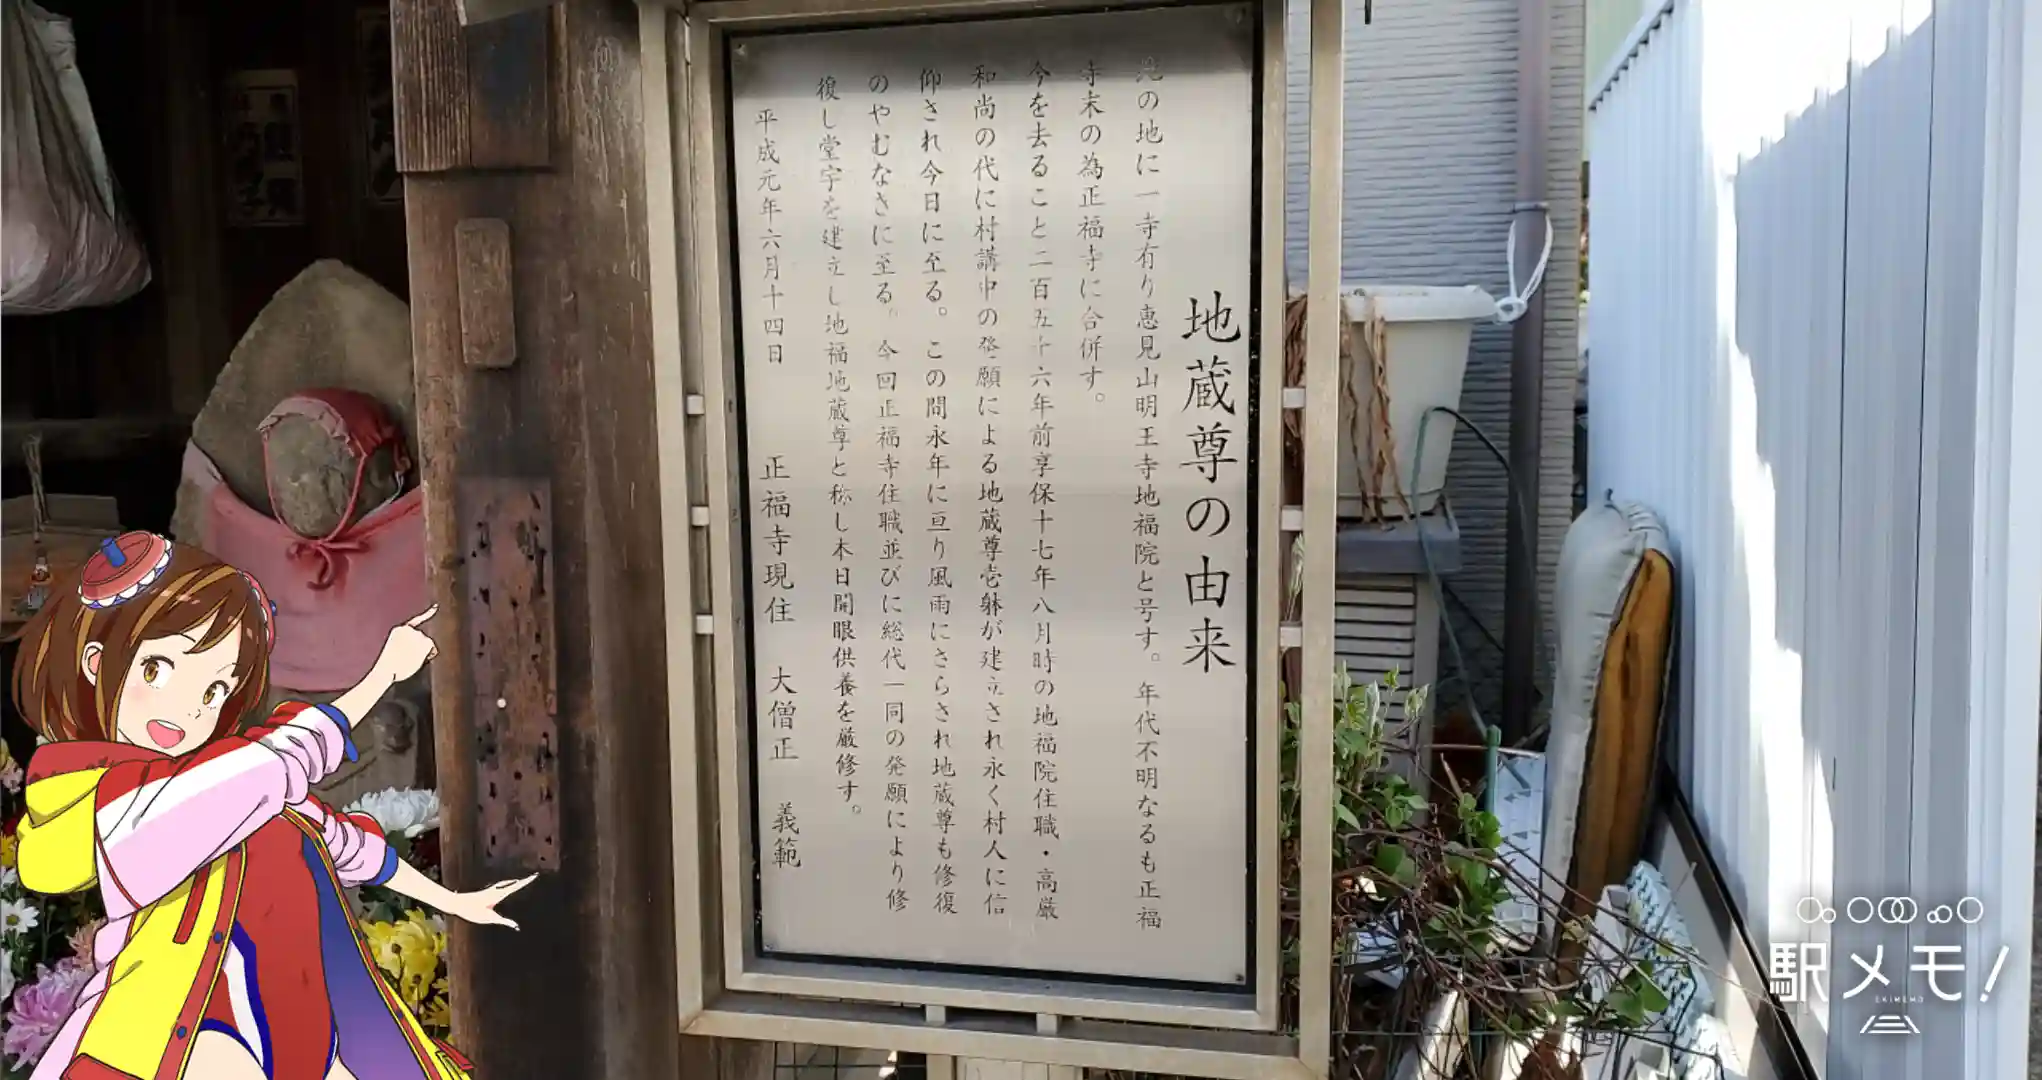 地蔵尊の由来
此の地に一寺有り恵見山明王寺地福院と号す。年代不明なるも正福
寺末の為正福寺に合併す。
今を去ること二百五十六年前享保十七年八月時の地福院住職・高厳
和尚の代に村講中の発願による地蔵尊壱躰が建立され永く村人に信
仰され今日に至る。この間永年に亘り風雨にさらされ地蔵尊も修復
のやむなきに至る。今回正福寺住職並びに総代一同の発願により修
復し堂宇を建立し地福地蔵尊と称し本日開眼供養を厳修す。
平成元年六月十四日
正福寺現住 大僧正 義範
駅メモ!
EKIMEMO